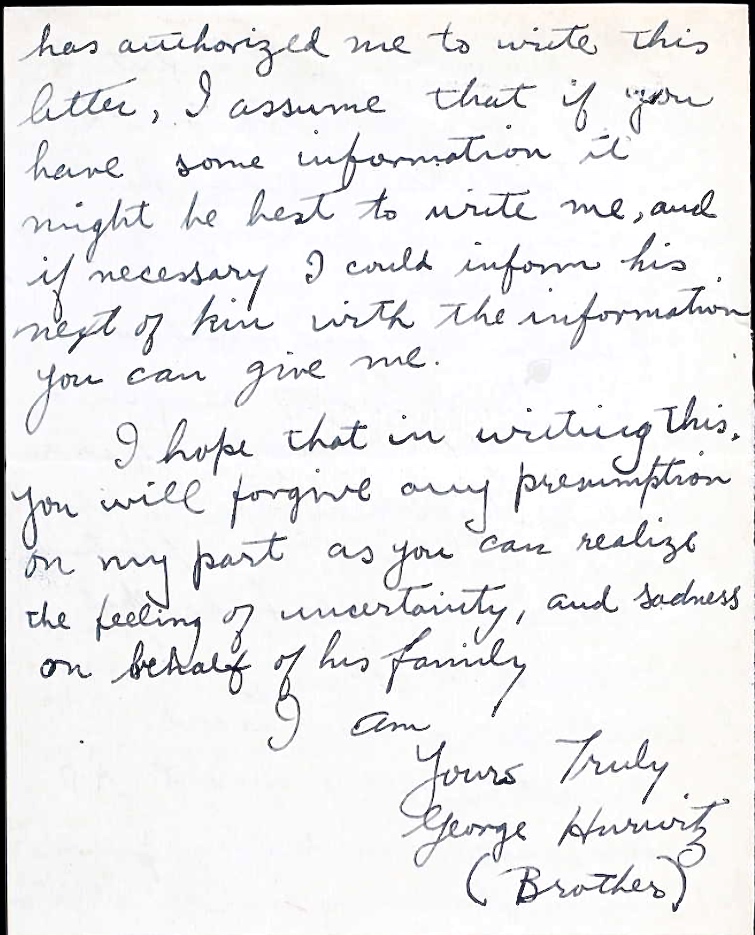 has authorized me to write this
letter, I assume that if you
have some information it
might be best to write me, and
if necessary I could inform his
next of kin with the information
you can give me.
I hope that in writing this.
you will forgive any presumption
on my part as you can realize
the feeling of uncertainty, and sadness
on behalf of his family
I am
Yours Truly
George Hurwitz
(Brother)